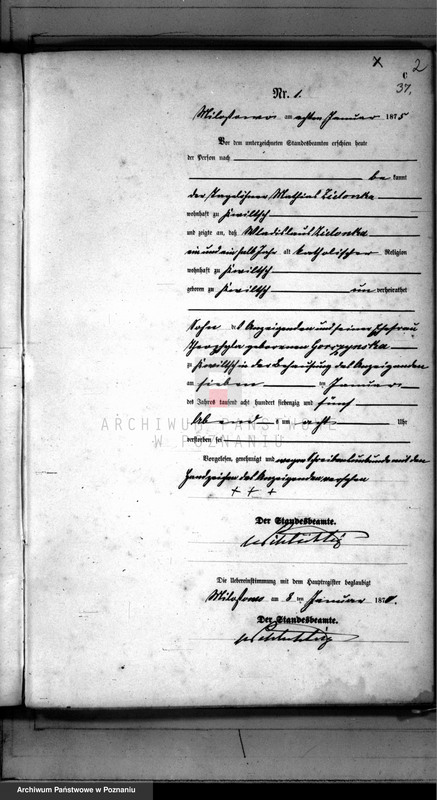 2
c
37.
Nr. 1.
Milostowo am achten Januar 1875
Vor dem unterzeichneten Standesbeamten erschien heute
der Person nach
be kannt
der Tagelöhner Mathias Zielonka
wohnhaft zu Kwiltsch
und zeigte an, daß Wladislaus Zielonka
ein und ein halb Jahr alt katholischer Religion
wohnhaft zu Kwiltsch
geboren zu Kwiltsch un verheirathet
Sohn des Anzeigenden und seiner Ehefrau
Theophyla geborenen
zu Kwiltsch in der Behausung des Anzeigenden
am sieben ten Januar
des Jahres tausend acht hundert siebenzig und fünf
Abend s um acht Uhr
verstorben sei
Vorgelesen, genehmigt und wegen Schreibensunkunde mit dem
Handzeichen des Anzeigenden versehen
+ + +
Der Standesbeamte.
Die Uebereinstimmung mit dem Hauptregister beglaubigt
Milostowo am 8 ten Januar 187
Der Standesbeamte.
ARCHIWUM PAŃSTWOWE
W POZNANIU
Archiwum Państwowe w Poznaniu